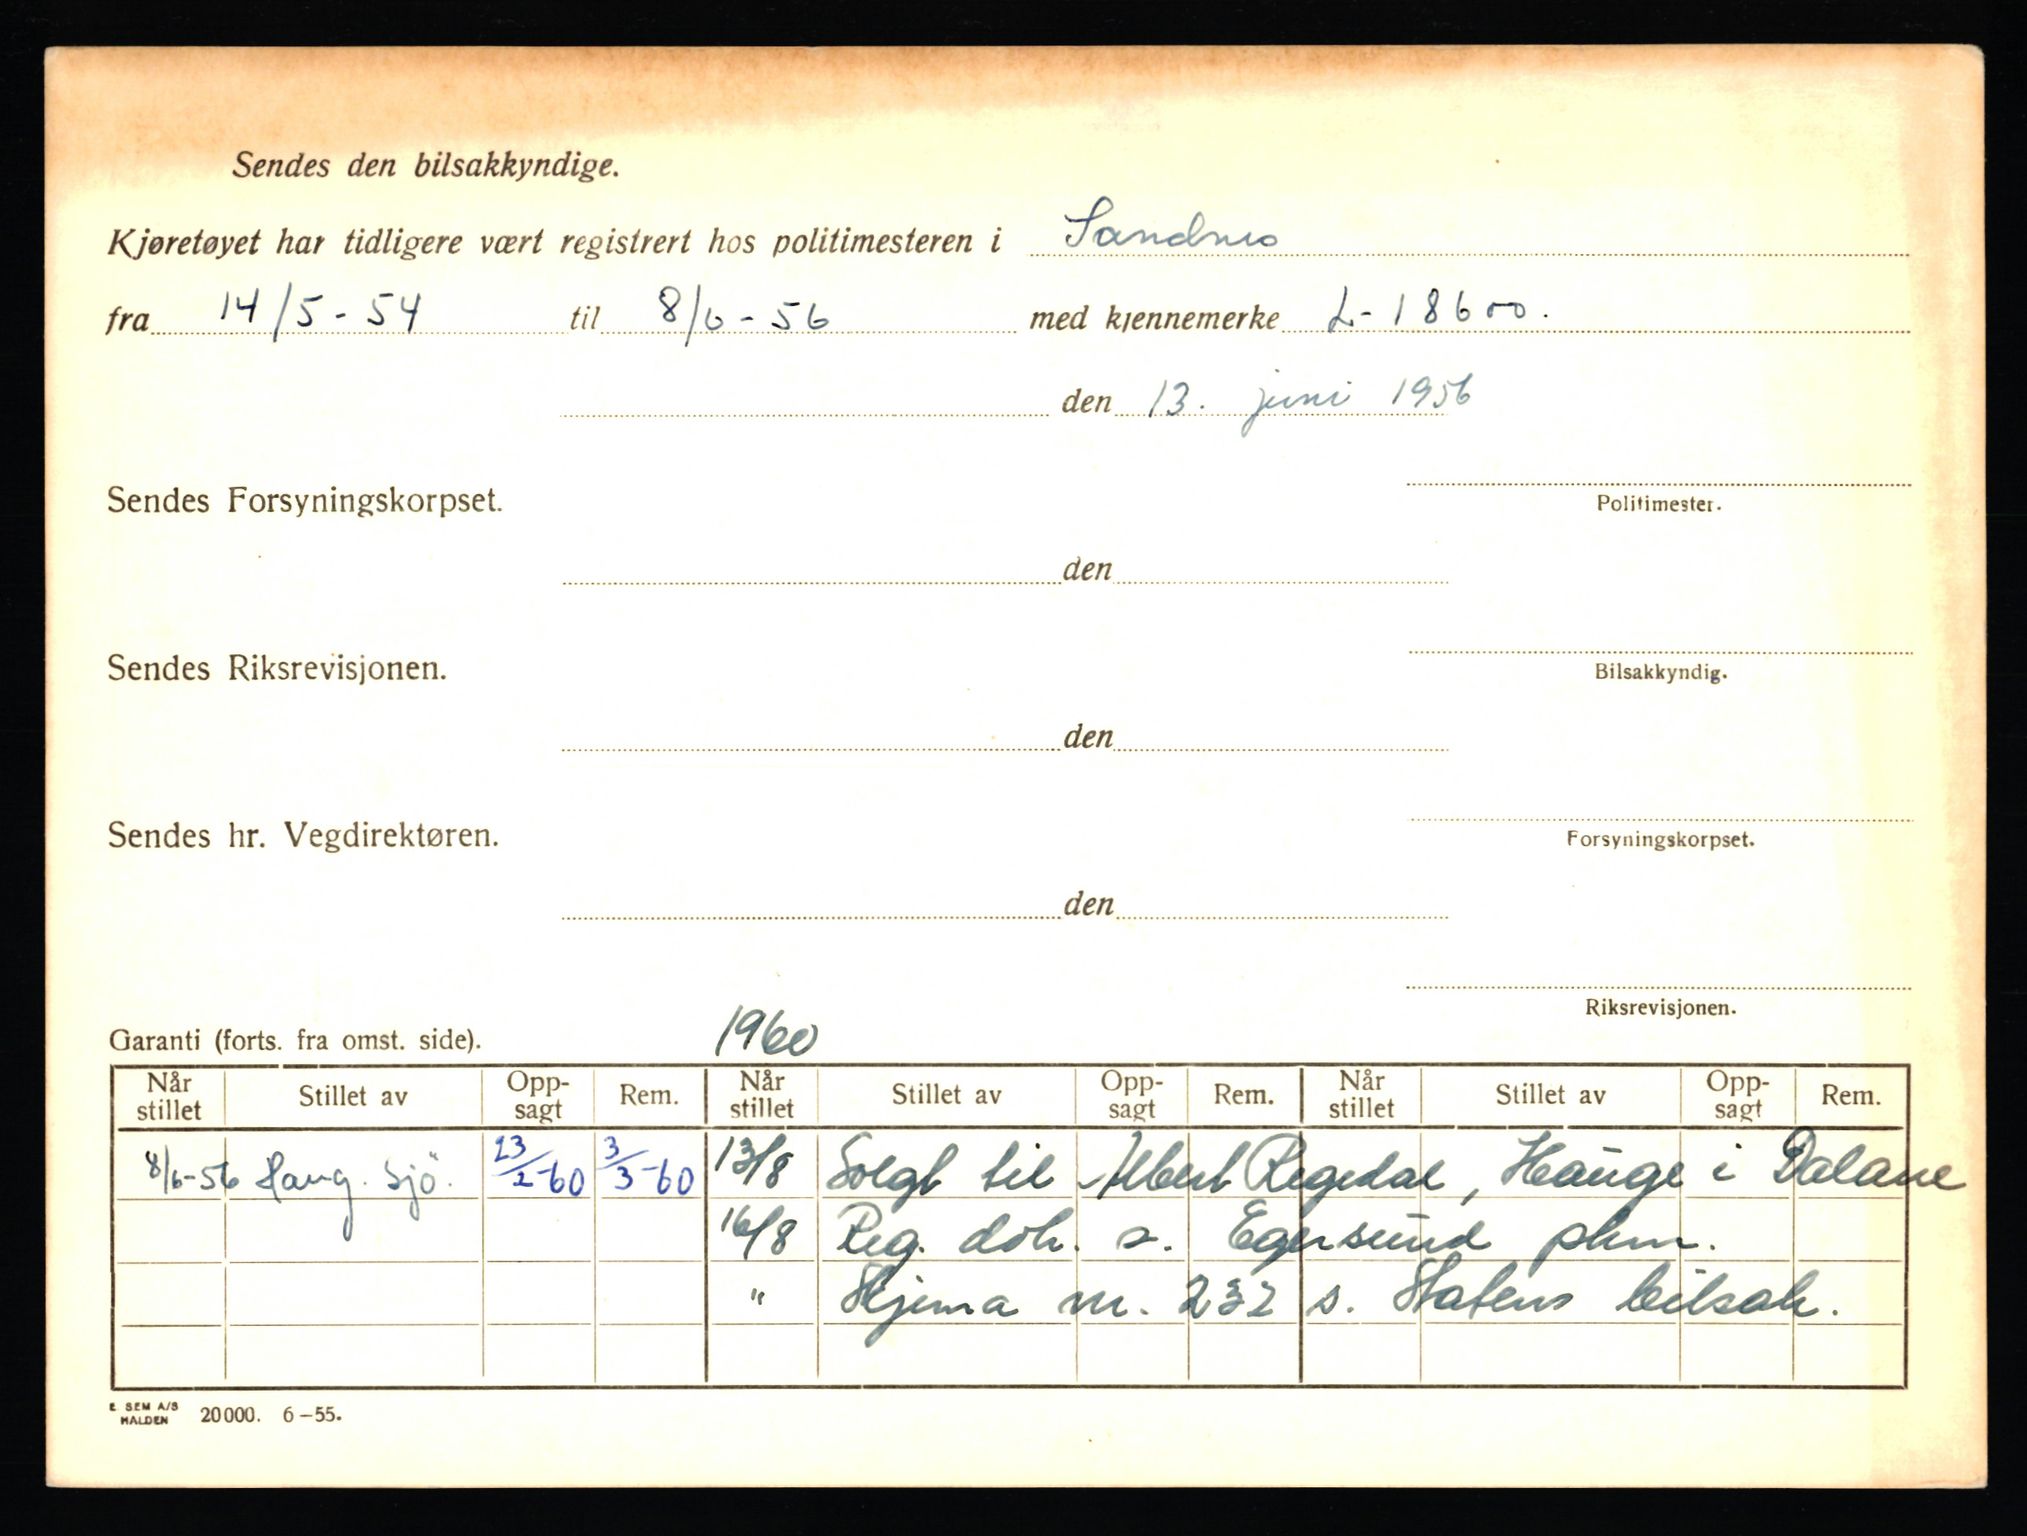 Sendes den bilsakkyndige.
Kjøretøyet har tidligere vært registrert hos politimesteren i Sandnes
fra 14/5-54 til 8/6-56 med kjennemerke L-18600.
den 13. juni 1956
Sendes Forsyningskorpset.
Politimester.
den
Sendes Riksrevisjonen.
Bilsakkyndig.
den
Sendes hr. Vegdirektøren.
Forsyningskorpset.
den
Riksrevisjonen.
Garanti (forts. fra omst. side). 1960
Når stillet Stillet av Opp-sagt Rem. Når stillet Stillet av Opp-sagt Rem. Når stillet Stillet av Opp-sagt Rem.
8/6-56 Haug. Sjö. 23/2-60 3/3-60 13/8 Solgt til Albert Regedal, Hauge i Dalane
16/8 Reg. dok. s. Egersund pkm.
" Skjema nr. 232 s. Statens bilsak.
E. SEM A/S HALDEN 20000. 6-55.